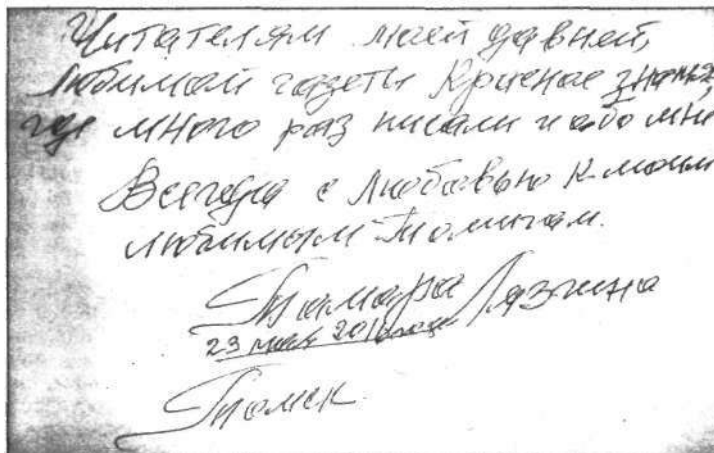 Читателям моей давней,
любимой газеты Красное знамя,
где много раз писали и обо мне
Всегда с любовью к моим
любимым Томичам.
Тамара Лязгина
23 мая года
Томск